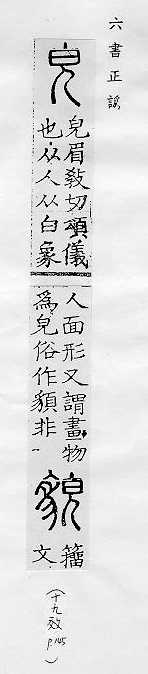 六書正譌
皃
皃眉敎切頌儀
也从人从白象
人面形又謂畫物
爲皃俗作䫉非一
貌
籒
文
(十九效
p.145)